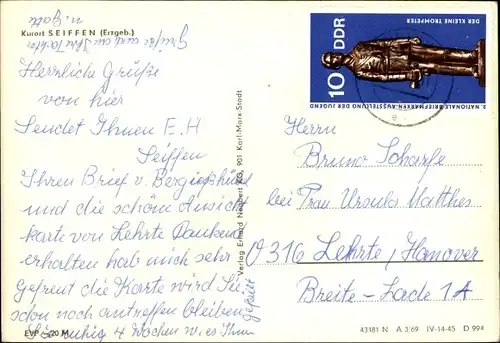 Kurort SEIFFEN (Erzgeb.)
Grüße auch an Ihre Tochter
u. Gatte
Herrliche Grüße
von hier
Sendet Ihnen E. H
Seiffen
Ihren Brief v. Bergießhübel
und die schöne Ansichts
karte von Lehrte Dankend
erhalten hab mich sehr
gefreut die Karte wird Sie
schon noch antreffen bleiben
Sie ruhig 4 Wochen wo es Ihnen
gefällt
EVP –,20 M
Verlag Erhard Neubert KG, 901 Karl-Marx-Stadt
10 DDR
2. NATIONALE BRIEFMARKEN-AUSSTELLUNG DER JUGEND
DER KLEINE TROMPETER
Herrn
Bruno Scharfe
bei Frau Ursula Matthes
316 Lehrte/Hanover
Breite-Lade 1A
43181 N A 3/69 IV-14-45 D 994